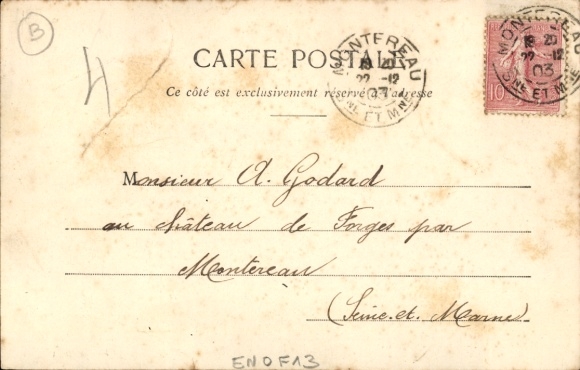 B
CARTE POSTALE
Ce côté est exclusivement réservé à l'adresse
MONTEREAU
18 20
22 -12
03
SNE ET MNE
MONTEREAU
18 20
22 -12
03
SNE ET MNE
10
4
Monsieur A. Godard
au château de Forges par
Montereau
(Seine-et-Marne)
ENOFA3